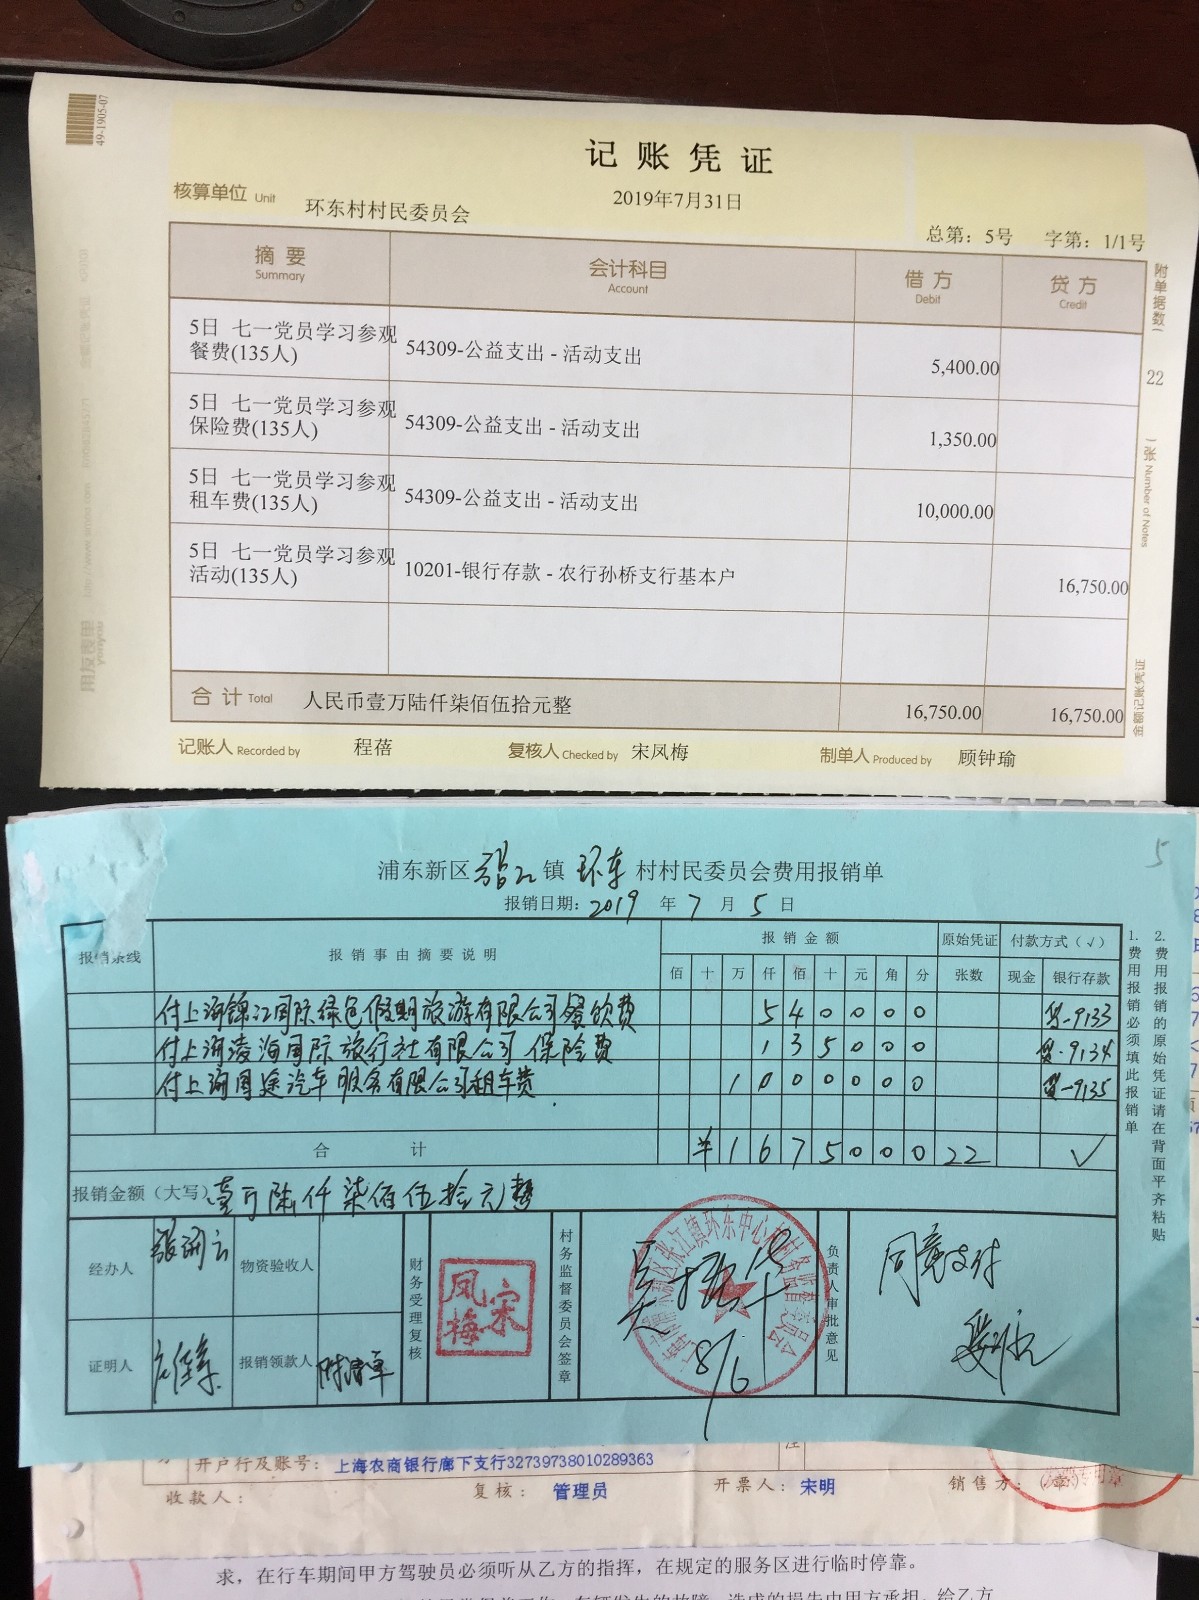 49-1905-07
记账凭证
2019年7月31日
核算单位 Unit 环东村村民委员会
总第：5号 字第：1/1号
摘要 会计科目 借方 贷方
Summary Account Debit Credit
5日 七一党员学习参观
餐费(135人) 54309-公益支出 - 活动支出 5,400.00
5日 七一党员学习参观
保险费(135人) 54309-公益支出 - 活动支出 1,350.00
5日 七一党员学习参观
租车费(135人) 54309-公益支出 - 活动支出 10,000.00
5日 七一党员学习参观
活动(135人) 10201-银行存款 - 农行孙桥支行基本户 16,750.00
合计 Total 人民币壹万陆仟柒佰伍拾元整 16,750.00 16,750.00
记账人 Recorded by 程蓓 复核人 Checked by 宋凤梅 制单人 Produced by 顾钟瑜
附单据数（ 22 ）张 Number of Notes
金额记账凭证
用友表单
yonyou
5
浦东新区张江镇环东村村民委员会费用报销单
报销日期：2019年7月5日
报销条线 报销事由摘要说明 报销金额 原始凭证 付款方式（√）
佰 十 万 仟 佰 十 元 角 分 张数 现金 银行存款
付上海锦江国际绿色假期旅游有限公司餐饮费 5 4 0 0 0 0 贷-9133
付上海凌海国际旅行社有限公司保险费 1 3 5 0 0 0 贷-9134
付上海周途汽车服务有限公司租车费 1 0 0 0 0 0 0 贷-9135
合计 ¥ 1 6 7 5 0 0 0 22 √
报销金额（大写） 壹万陆仟柒佰伍拾元整
经办人 物资验收人 财务受理复核 宋凤梅 村务监督委员会签章 8/6 负责人审批意见 同意支付
证明人 报销领款人
1.费用报销必须填此报销单
2.费用报销的原始凭证请在背面平齐粘贴
开户行及账号： 上海农商银行廊下支行32739738010289363
收款人： 复核： 管理员 开票人： 宋明 销售方：（章）
求，在行车期间甲方驾驶员必须听从乙方的指挥，在规定的服务区进行临时停靠。